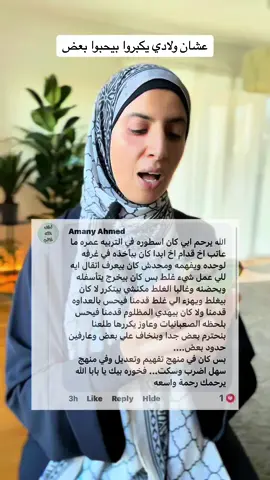 عشان ولادي يكبروا بيحبوا بعض
Amany Ahmed
الله يرحم ابي كان اسطوره في التربيه عمره ما
عاتب اخ قدام اخ ابدا كان بياخده في غرفه
لوحده ويفهمه ومحدش كان بيعرف اتقال ايه
للي عمل شيء غلط بس كان بيخرج يتأسفله
ويحضنه وغالبا الغلط مكنشي بيتكرر لا كان
بيغلط ويهزء الي غلط قدمنا فيحس بالعداوه
قدمنا ولا كان بيهدي المظلوم قدمنا فيحس
بلحظه الصعبانيات وعاوز يكررها طلعنا
بنحترم بعض جدا وبنخاف علي بعض وعارفين
حدود بعض....
بس كان في منهج تفهيم وتعديل وفي منهج
سهل اضرب وسكت... فخوره بيك يا بابا الله
يرحمك رحمة واسعه
3h Like Reply Hide 1